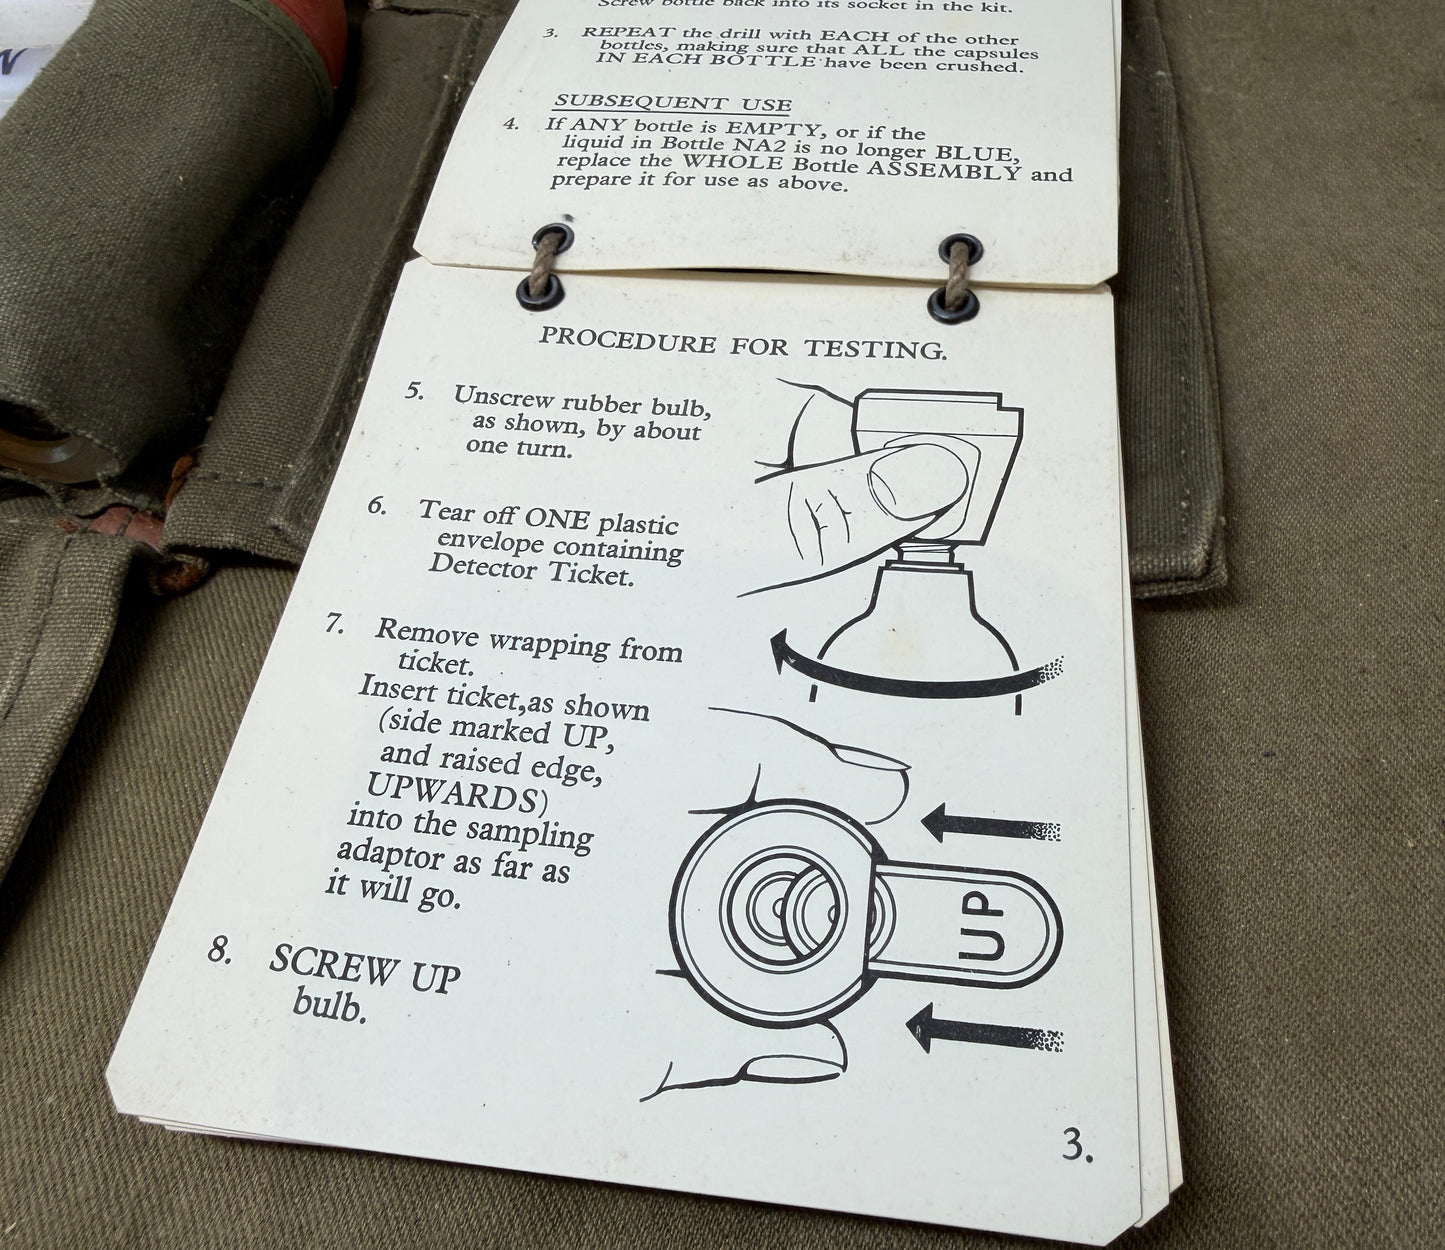 Screw bottle back into its socket in the kit.
3. REPEAT the drill with EACH of the other
bottles, making sure that ALL the capsules
IN EACH BOTTLE have been crushed.
SUBSEQUENT USE
4. If ANY bottle is EMPTY, or if the
liquid in Bottle NA2 is no longer BLUE,
replace the WHOLE Bottle ASSEMBLY and
prepare it for use as above.
PROCEDURE FOR TESTING.
5. Unscrew rubber bulb,
as shown, by about
one turn.
6. Tear off ONE plastic
envelope containing
Detector Ticket.
7. Remove wrapping from
ticket.
Insert ticket,as shown
(side marked UP,
and raised edge,
UPWARDS)
into the sampling
adaptor as far as
it will go.
UP
8. SCREW UP
bulb.
3.